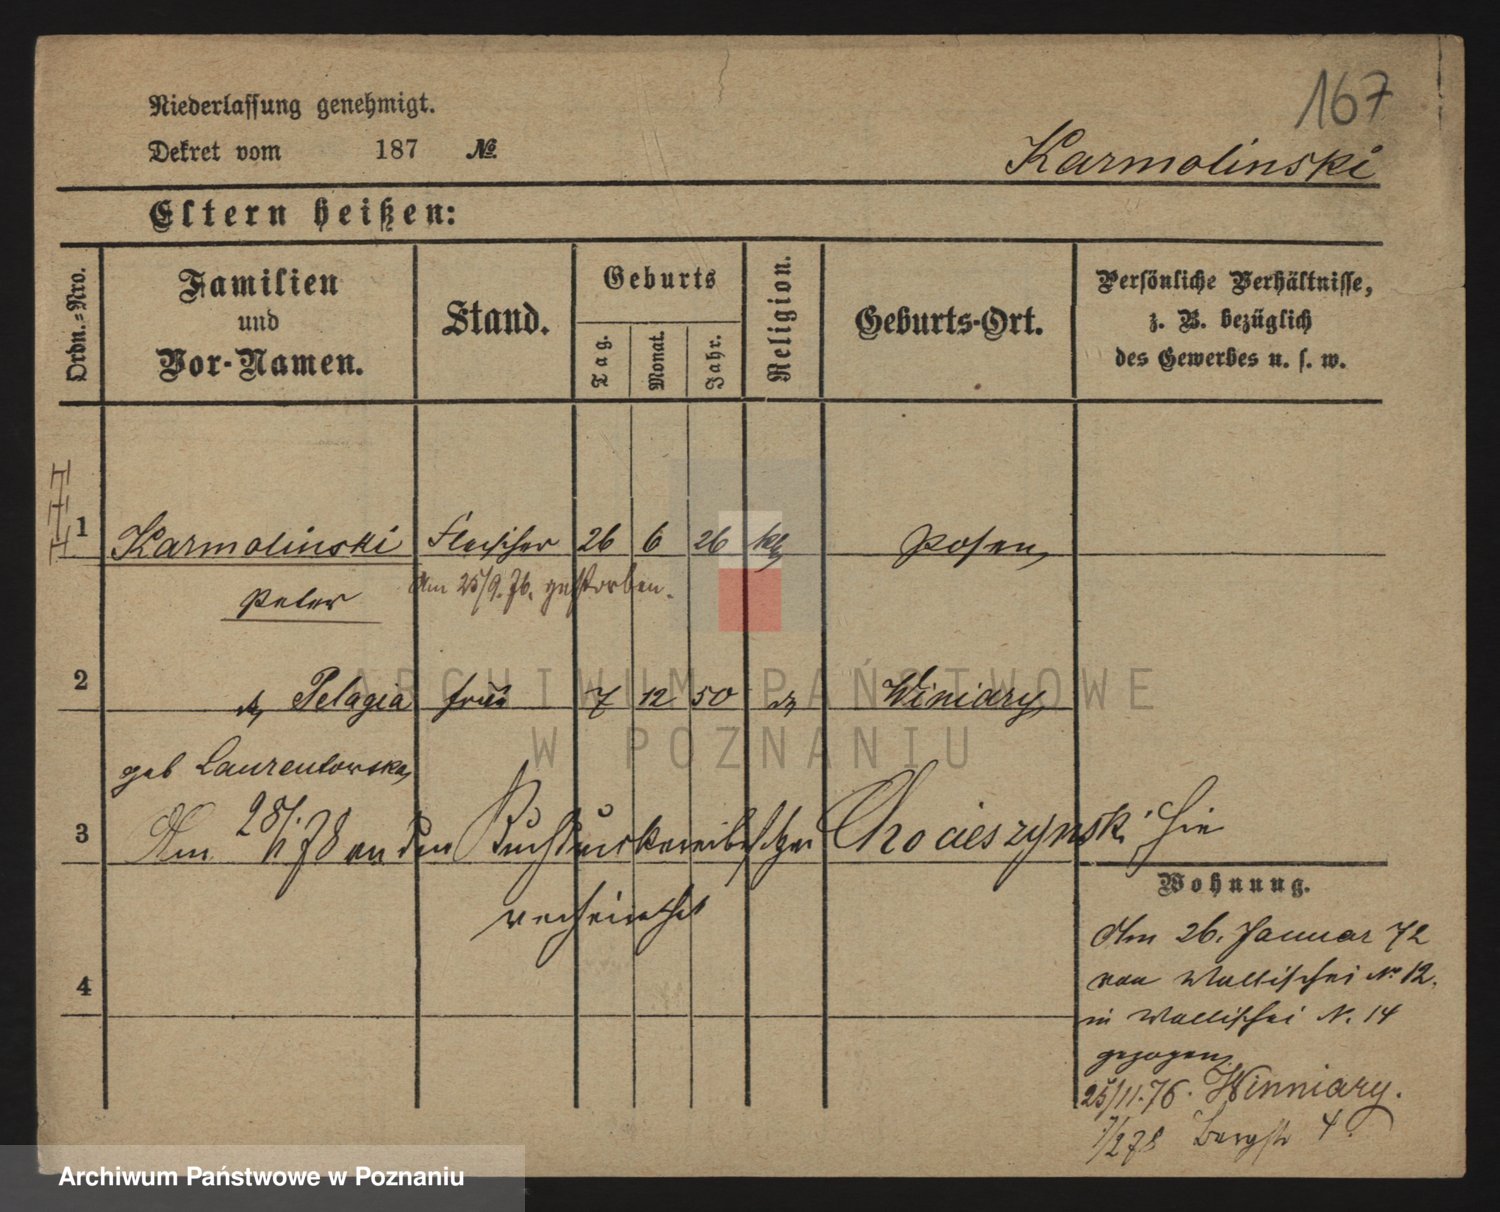 167
Niederlassung genehmigt.
Dekret vom 187 №
Karmolinski
Eltern heißen:
Ordn.-Nro.
Familien
und
Vor-Namen.
Stand.
Geburts
Tag.
Monat.
Jahr.
Religion.
Geburts-Ort.
Persönliche Verhältnisse,
z. B. bezüglich
des Gewerbes u. s. w.
1 Karmolinski Fleischer 26 6 26 kth Posen
Peter
Am 25/9. 76. gestorben.
2 Pelagia frau 7 12 50 Winiary
geb Laurentowska
3 Am 28/1 78 an den Buchdruckereibesitzer Chocieszynski hier
verheirathet
4
Wohnung.
Am 26. Januar 72
von Wallischei No 12.
in Wallischei N. 14
gezogen
25/11.76. Winniary.
7/2 78 Bergstr 4.
ARCHIWUM PAŃSTWOWE
W POZNANIU
Archiwum Państwowe w Poznaniu